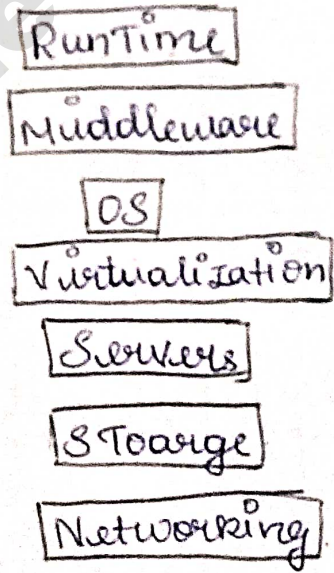 RunTime
Middleware
OS
Virtualization
Servers
SToarge
Networking